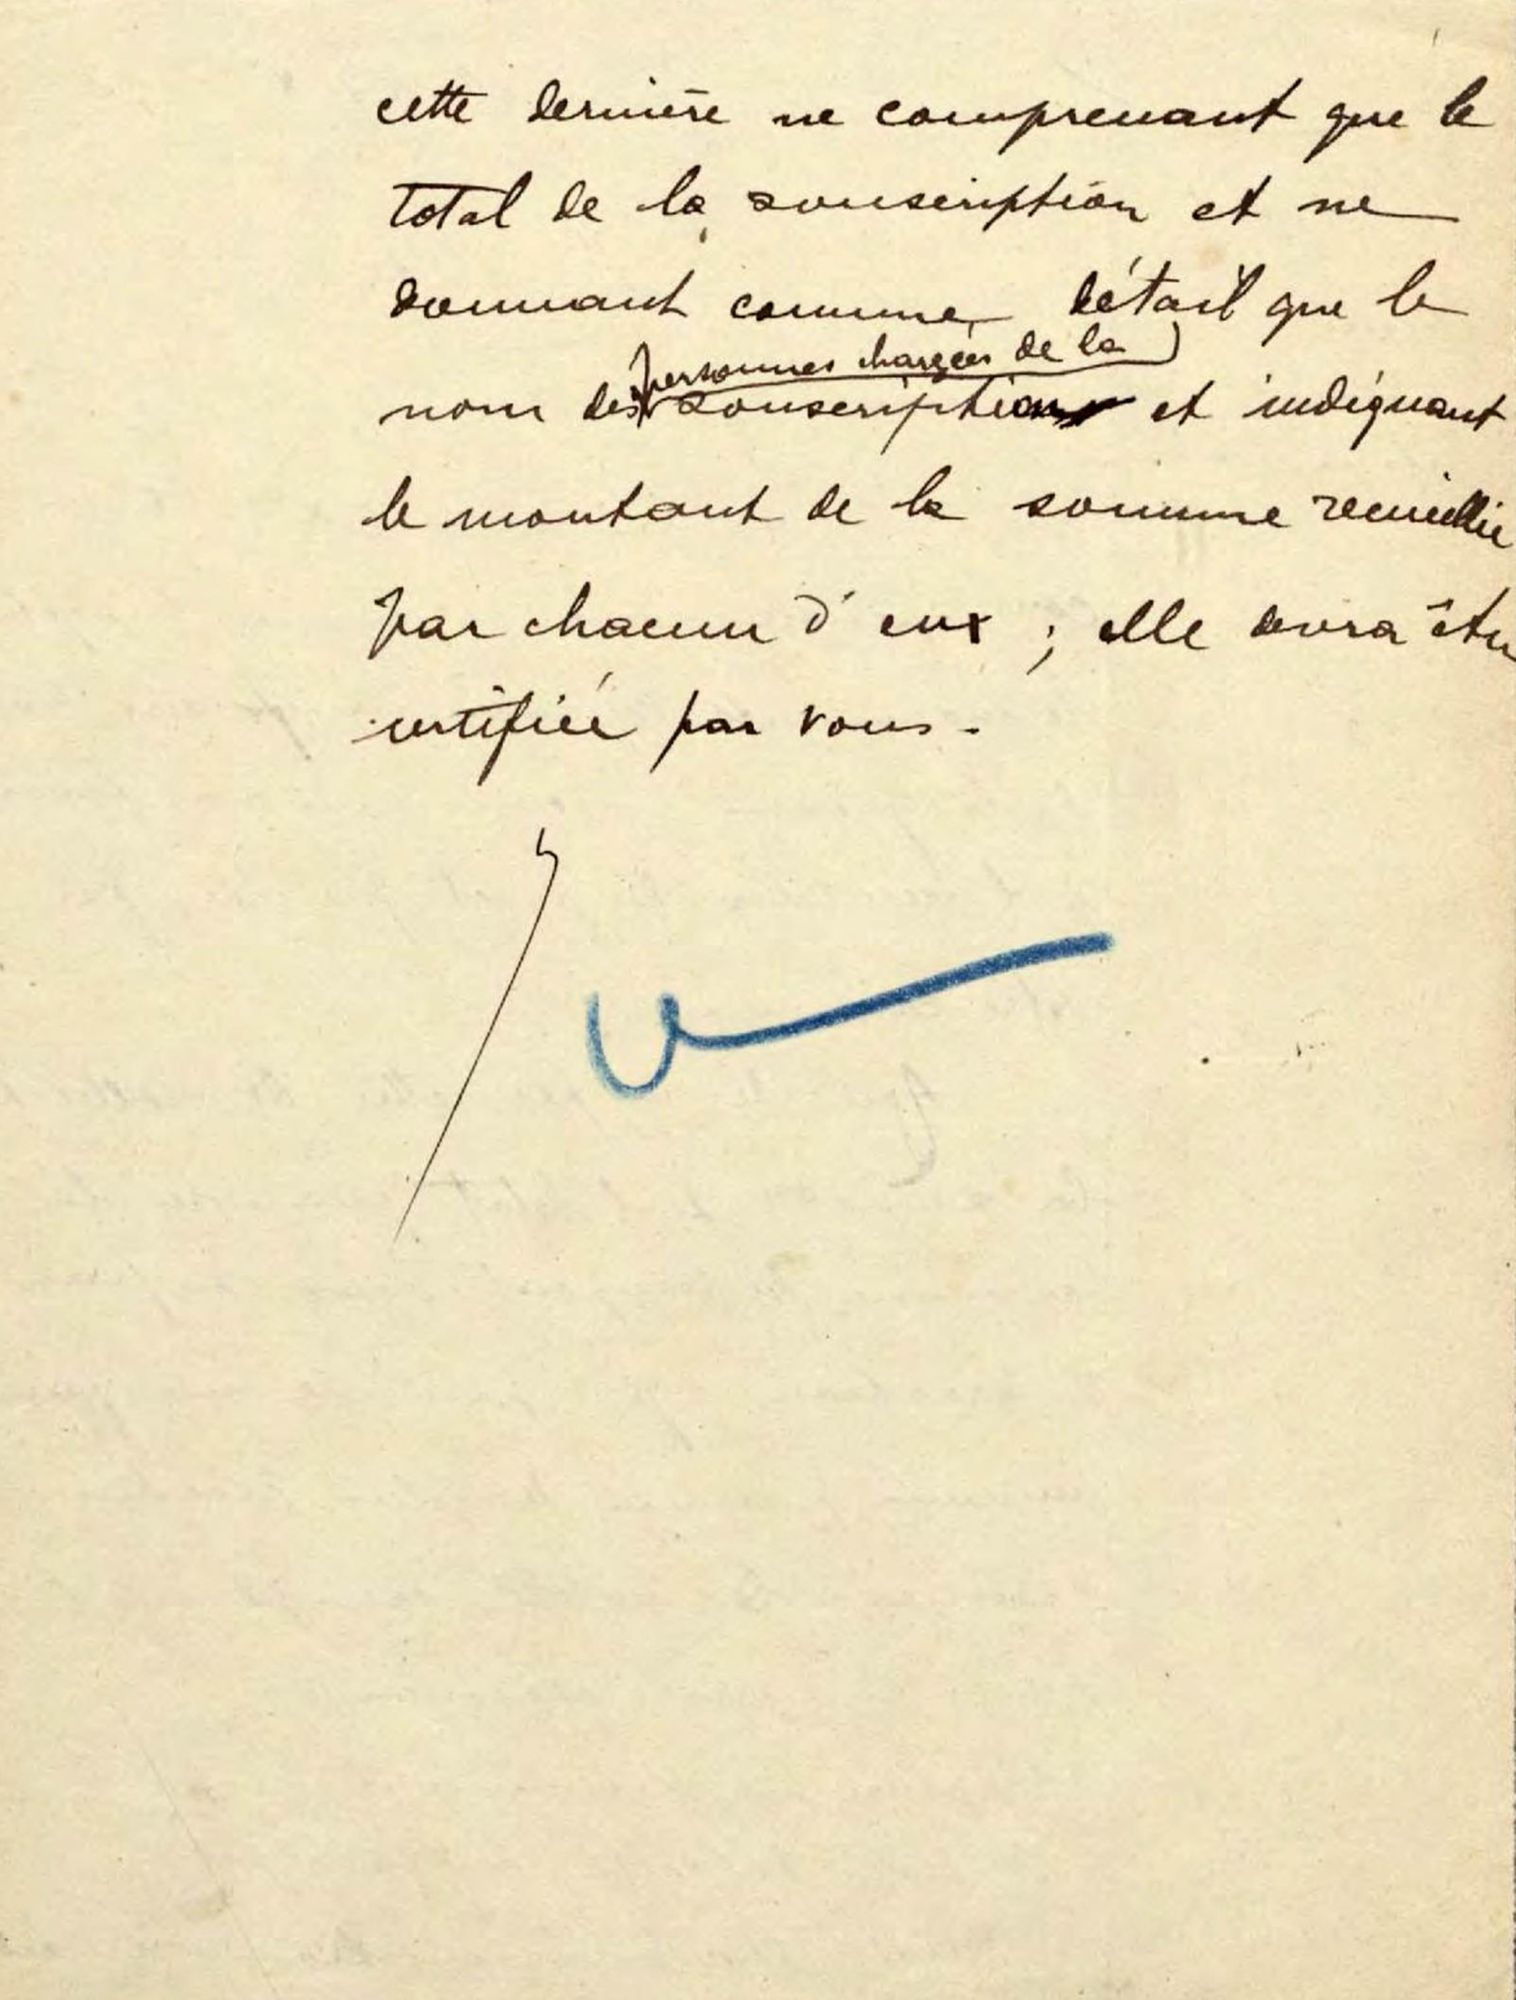 cette dernière ne comprenant que le
total de la souscription et ne
donnant comme détail que le
personnes chargées de la
nom des souscription et indiquant
le montant de la somme recueillie
par chacun d'eux ; elle devra être
certifiée par vous.